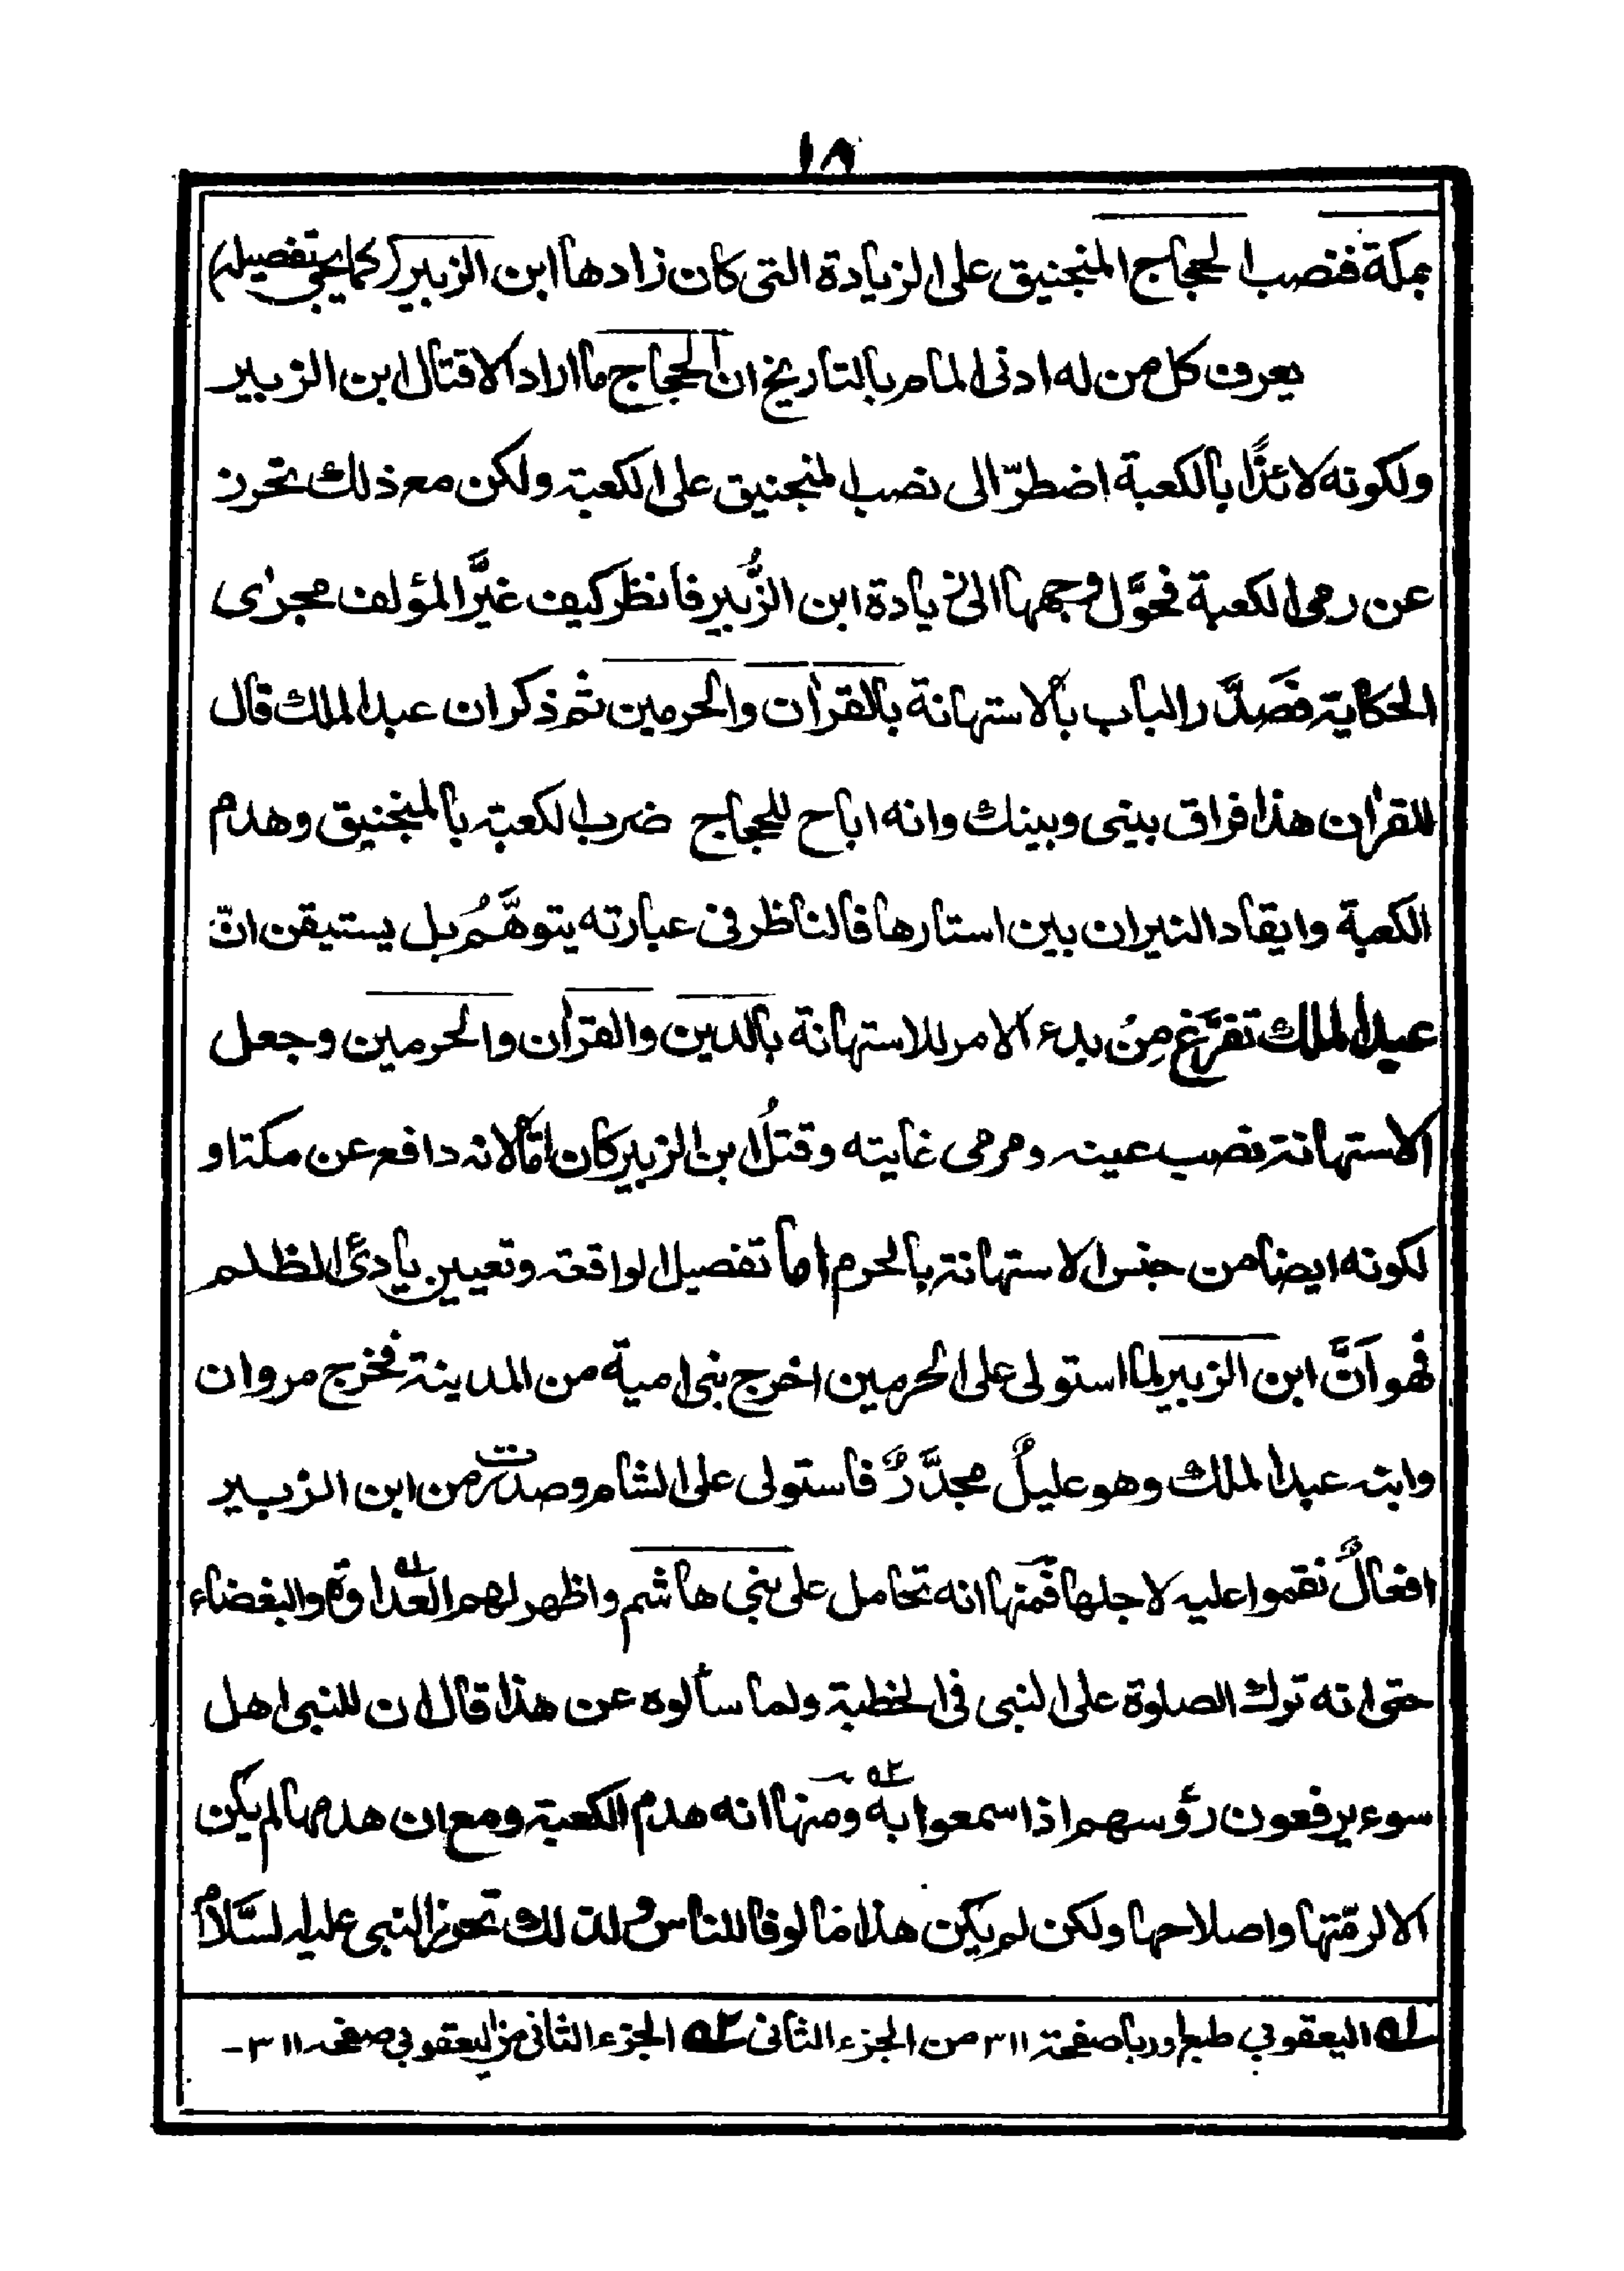 ١٨
بمكة فنصب الحجاج المنجنيق على الزيادة التى كان زادها ابن الزبير (كما يجئ تفصيله)
يعرف كل من له ادنى المام بالتاريخ ان الحجاج ما اراد الا قتال ابن الزبير
ولكونه لائذًا بالكعبة اضطرّ الى نصب المنجنيق على الكعبة ولكن مع ذلك تحرز
عن رمى الكعبة فحوَّل وجهها الى زيادة ابن الزُّبير فانظر كيف غيَّر المؤلف مجرٰى
الحكاية فصَدَّر الباب بالاستهانة بالقرأن والحرمين ثم ذكر ان عبد الملك قال
للقرأن هذا فراق بينى وبينك وانه اباح للحجاج ضرب الكعبة بالمنجنيق وهدم
الكعبة وايقاد النيران بين استارها فالناظر فى عبارته يتوهَّمُ بل يستيقن انّ
عبد الملك تفرَّغ مِنْ بدء الامر للاستهانة بالدين والقرأن والحرمين وجعل
الاستهانة نصب عينه ومرمى غايته وقتلُ ابن الزبير كان امّا لانه دافع عن مكة او
لكونه ايضا من جنس الاستهانة بالحرم اما تفصيل الواقعة وتعيين بادئ الظلم
فهو اَنَّ ابن الزبير لما استولى على الحرمين اخرج بنى امية من المدينة فخرج مروان
وابنه عبد الملك وهو عليلٌ مجدَّرٌ فاستولى على الشام وصدرت من ابن الزبير
افعالٌ نقموا عليه لاجلها فمنها انه تحامل على بنى هاشم واظهر لهم العداوة ١ه والبغضاء
حتى انه ترك الصلوة على النبى فى الخطبة ولما سألوه عن هذا قال ان للنبى اهل
سوء يرفعون رؤسهم اذا سمعوا به ٢ه ومنها انه هدم الكعبة ومع ان هدمها لم يكن
الا لرمّتها واصلاحها ولكن لم يكن هذا مالوفا للناس ولذلك تحرز النبى عليه السَّلام
١ه اليعقوبي طبع اوربا صفحة ٣١١ من الجزء الثانى ٢ه الجزء الثانى من اليعقوبي صفحه ٣١١-